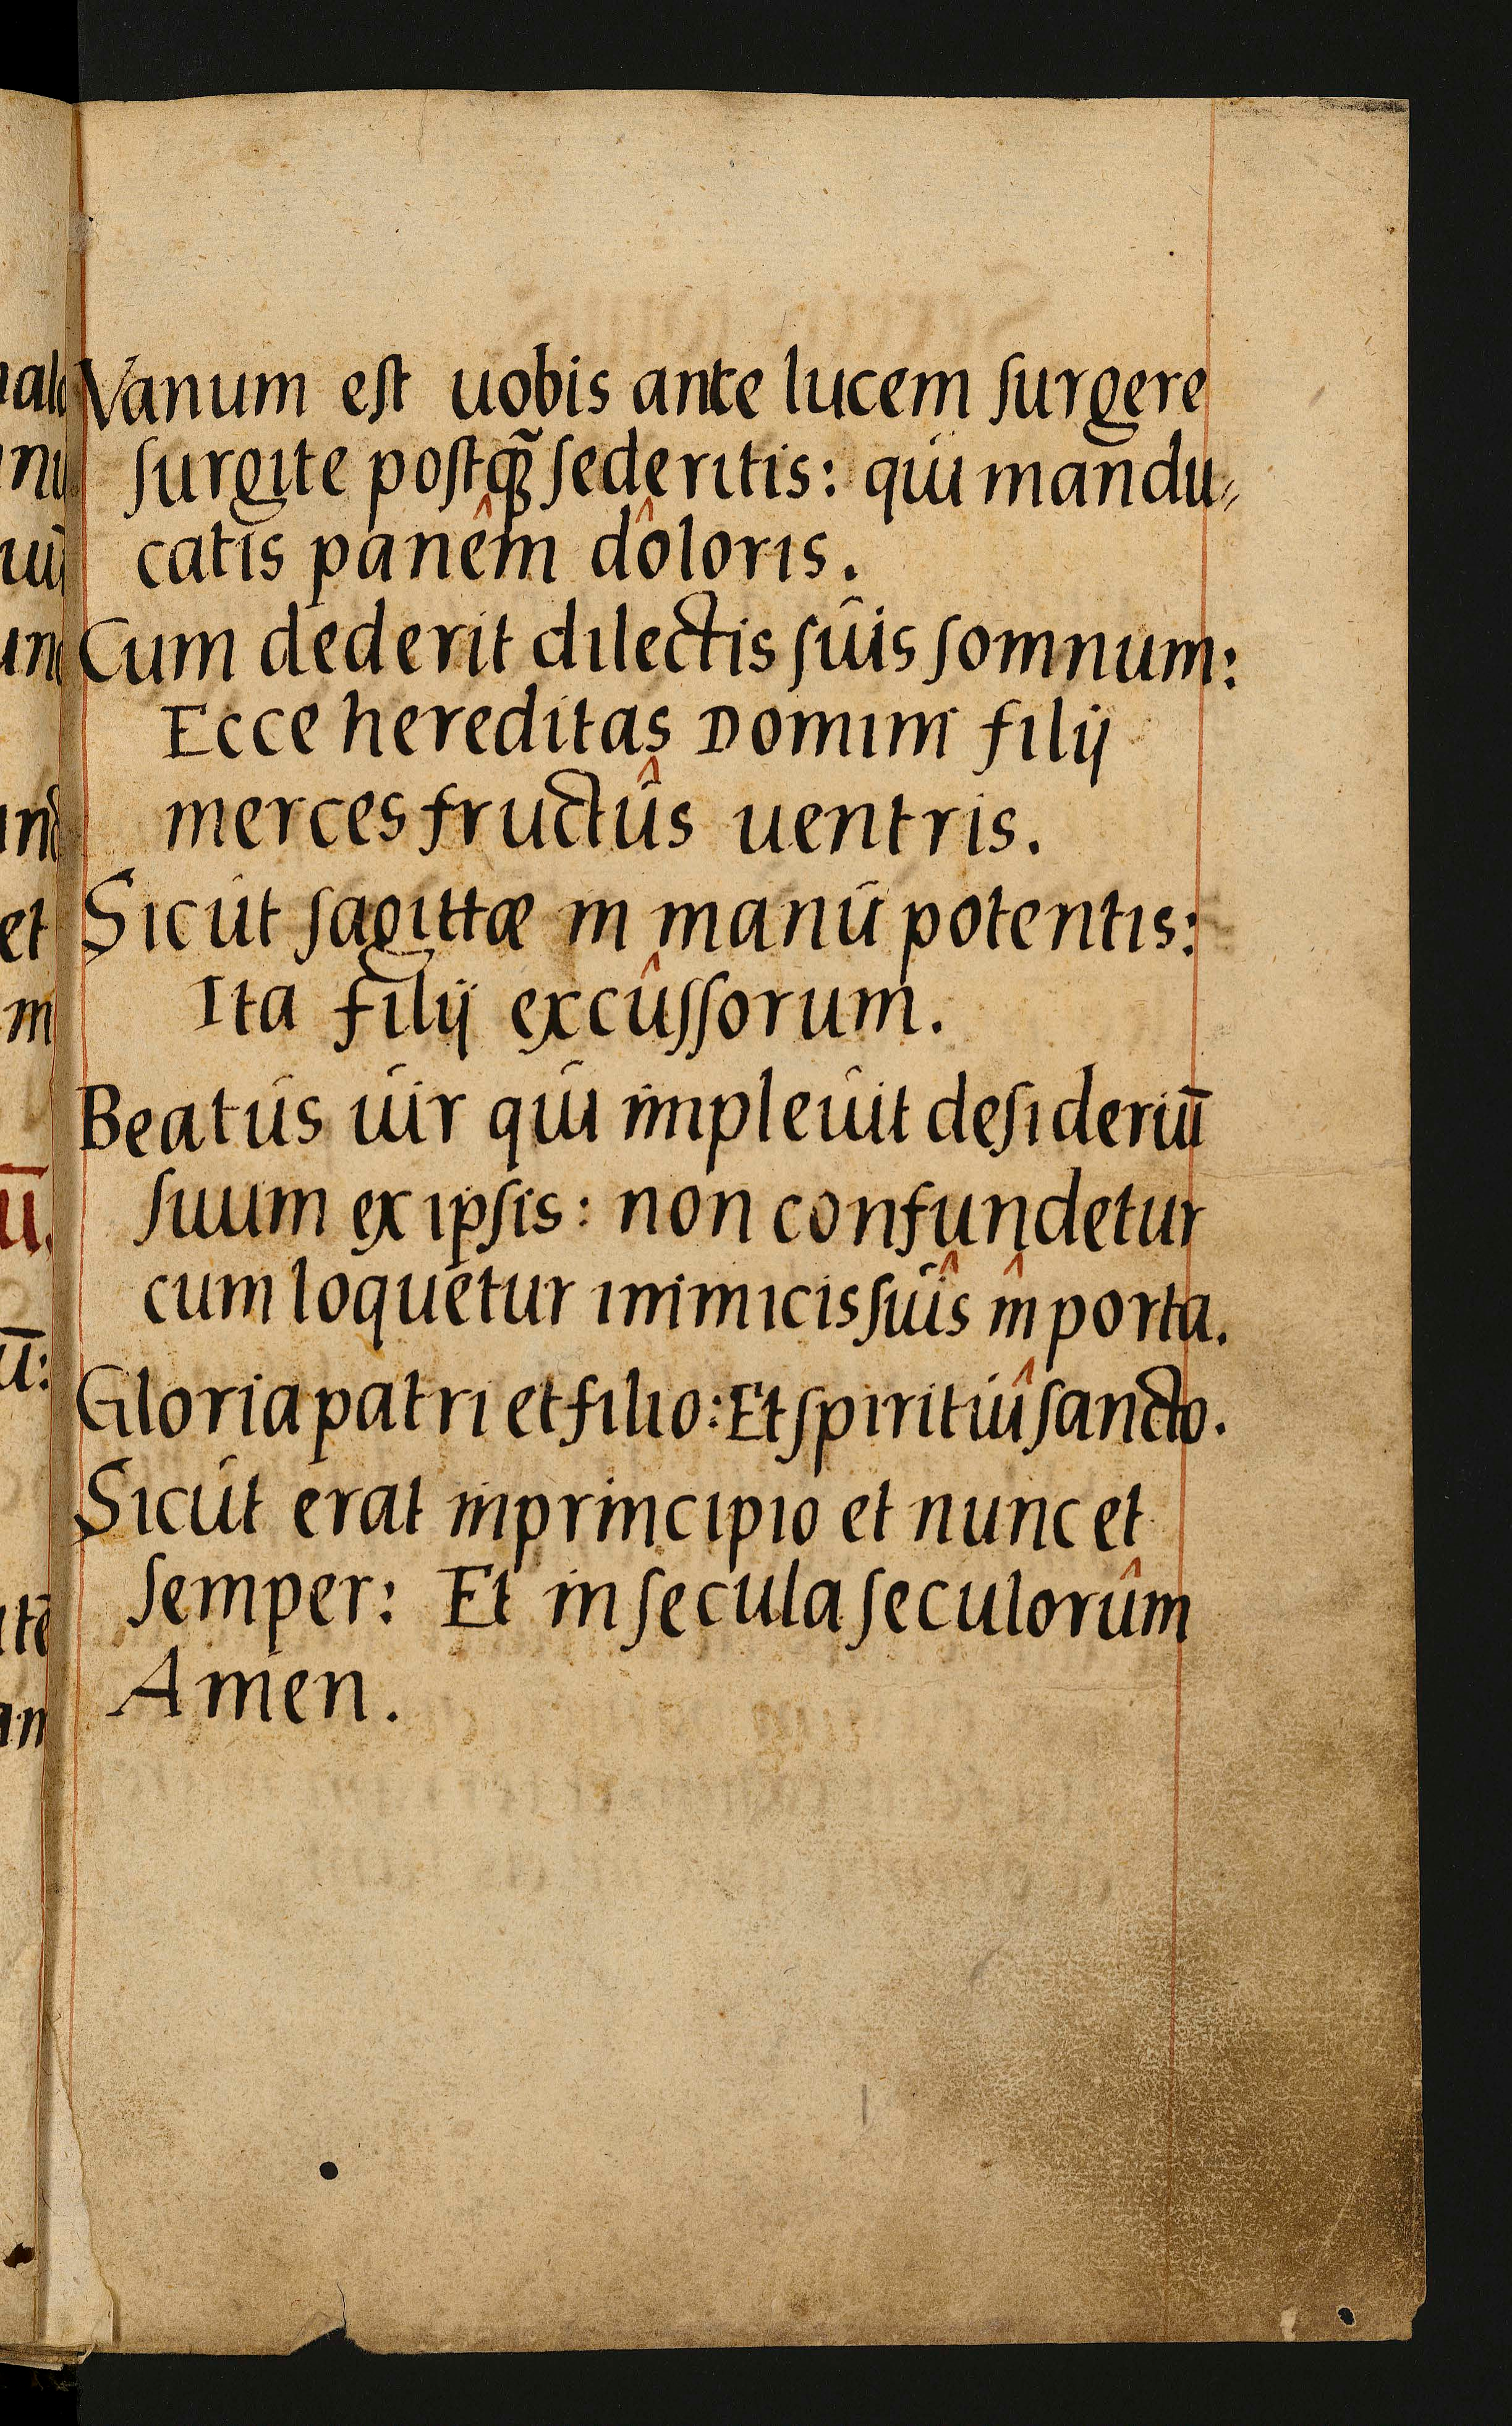 Vanum eſt uobis ante lucem ſurgere
ſurgite poſtꝗ̃ ſederitis: qui mandu⸗
catis panêm dôloris.
Cum dederit dilectis ſuis ſomnum:
Ecce hereditas Domini filij
merces fructûs uentris.
Sicut ſagittæ in manu potentis:
Ita filij excûſſorum.
Beatus uir qui impleuit deſideriū
ſuum ex ipſis: non confundetur
cum loquetur inimicis ſuîs în porta.
Gloria patri et filio: Et ſpirituî ſancto.
Sicut erat in principio et nunc et
ſemper: Et in ſecula ſeculorûm
Amen.